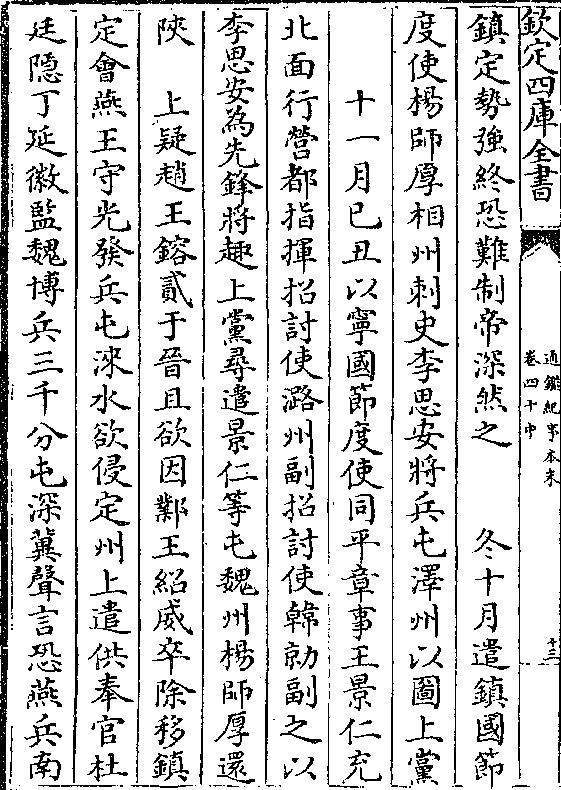 欽定四庫全書
通鑑紀事本末
卷四十中
十三
鎮定勢強終恐難制帝深然之　冬十月遣鎮國節
度使楊師厚相州刺史李思安將兵屯澤州以圖上黨
十一月己丑以寧國節度使同平章事王景仁充
北面行營都指揮招討使潞州副招討使韓勍副之以
李思安為先鋒將趣上黨尋遣景仁等屯魏州楊師厚還
陝　上疑趙王鎔貳于晉且欲因鄴王紹威卒除移鎮
定會燕王守光發兵屯淶水欲侵定州上遣供奉官杜
廷隱丁延徽監魏博兵三千分屯深冀聲言恐燕兵南